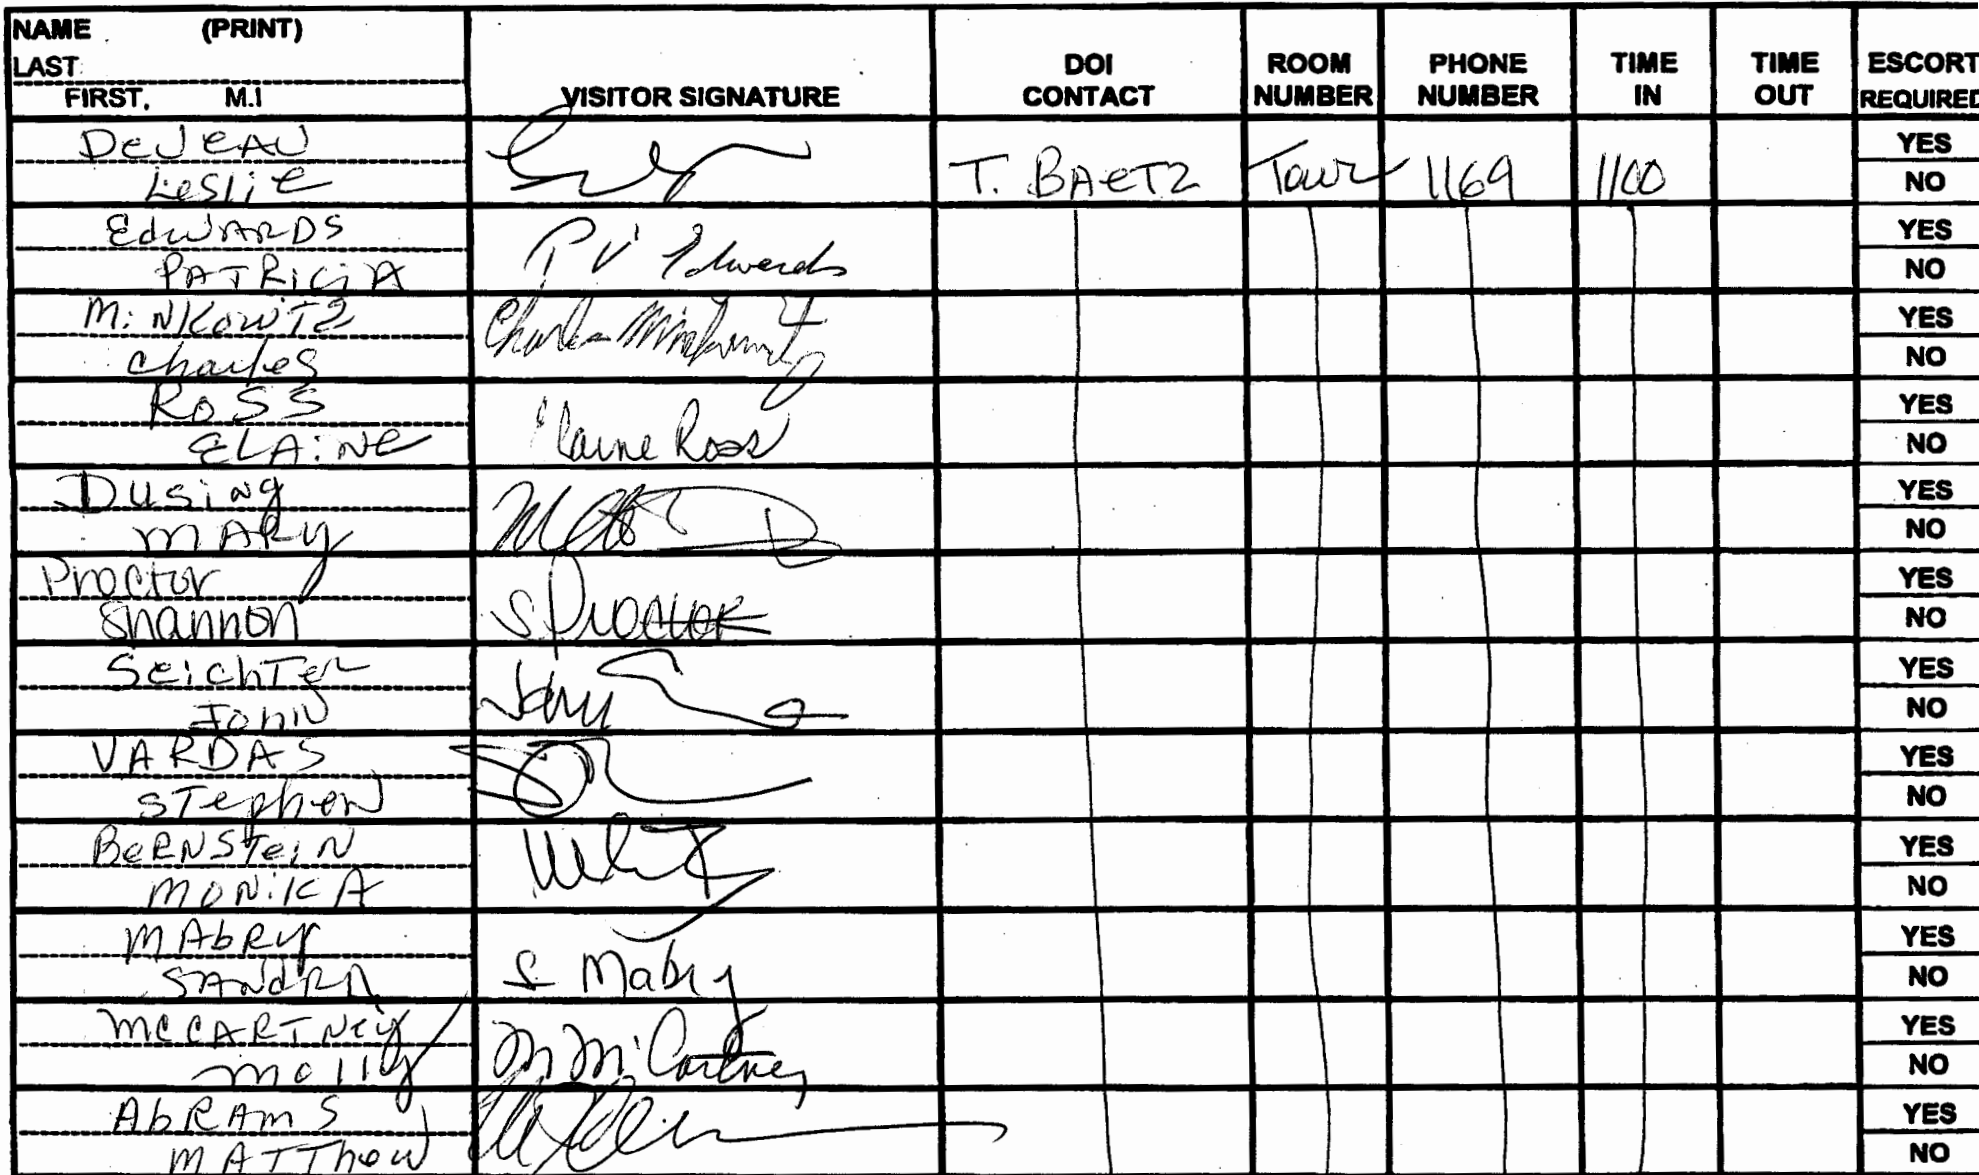 NAME (PRINT)
LAST
FIRST, M.I
VISITOR SIGNATURE
DOI CONTACT
ROOM NUMBER
PHONE NUMBER
TIME IN
TIME OUT
ESCORT REQUIRED
DeJEAU
LesliE
T. BAETZ Tour 1169 1100
YES
NO
EdwARDS
PATRICIA
PV Edwards
YES
NO
MiNKowiTz
charles
Charles Minkowitz
YES
NO
RoSS
ELAiNe
Elaine Ross
YES
NO
Dusing
MARy
YES
NO
Proctor
Shannon
S Proctor
YES
NO
SeichTer
John
John
YES
NO
VARDAS
STephen
YES
NO
BeRNSTeiN
MONiKA
YES
NO
MAbRy
SANdRA
S Mabry
YES
NO
McCARTNey
Molly
M McCartney
YES
NO
AbRAmS
MATThew
YES
NO